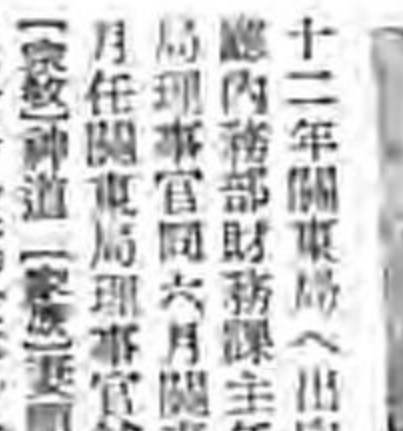 十二年關東局へ出
廳內務部財務課主任
局理事官同六月關東
月任關東局理事官
【宗敎】神道【家族】妻